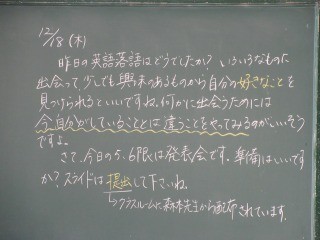 12/18(木)
昨日の英語落語はどうでしたか? いろいろなものに
出会って、少しでも興味のあるものから自分の好きなことを
見つけられるといいですね。何かに出会うためには
今、自分がしていることとは違うことをやってみるのがいいそう
ですよ。
さて、今日の5、6限は発表会です。準備はいいです
か? スライドは提出して下さいね。
↳クラスルームに森本先生から配布されています。